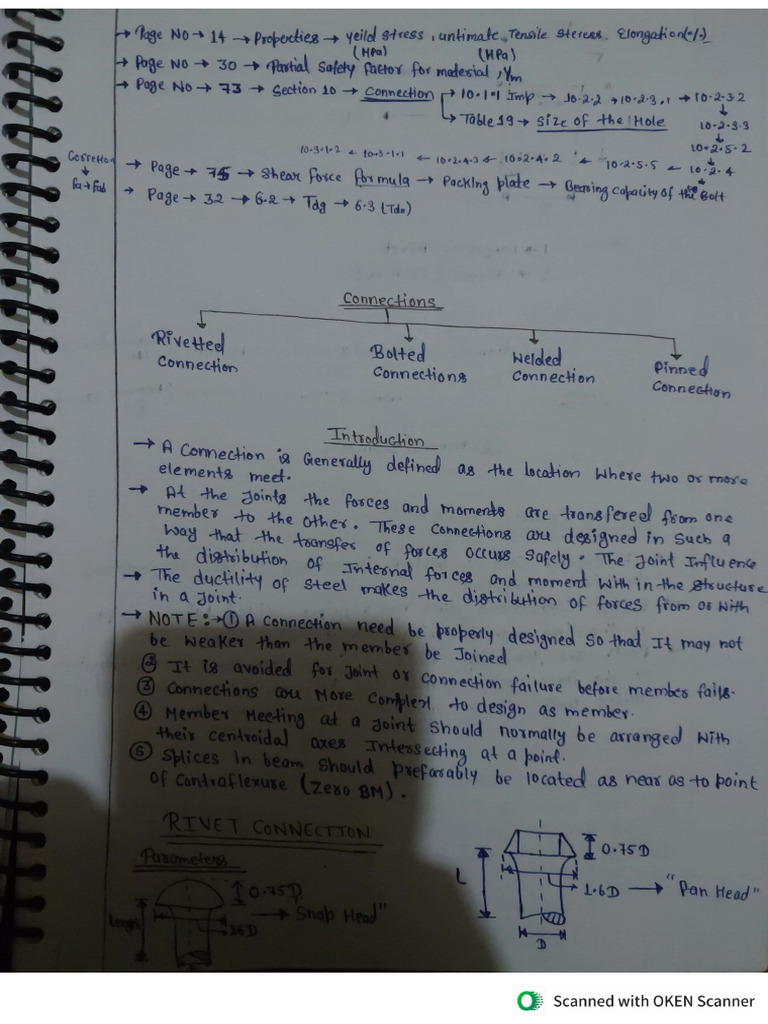 → Page No → 14 → Properties → yeild stress, untimate Tensile steress Elongation(-/-)
(MPa) (MPa)
→ Page No → 30 → Partial Safety Factor for material, γm
→ Page No → 73 → Section 10 → Connection → 10.1.1 Imp → 10.2.2 → 10.2.3.1 → 10.2.3.2
→ Table 19 → Size of the Hole
10.2.3.3
10.2.5.2
10.3.1.2 ← 10.3.1.1 ← 10.2.4.3 ← 10.2.4.2 ← 10.2.5.5 ← 10.2.4
Corretion
fa → fub
→ Page → 75 → Shear force formula → Packing plate → Bearing capacity of the Bolt
→ Page → 32 → 6.2 → Tdg → 6.3 (Tdn)
Connections
Rivetted Connection
Bolted Connections
Welded Connection
Pinned Connection
Introduction
→ A Connection is Generally defined as the location Where two or more
elements meet.
→ At the Joints the forces and moments are transfered from one
member to the other. These Connections are designed in Such a
way that the transfer of forces occurs safely. The Joint Influence
the distribution of Internal forces and moment With in the Structure
→ The ductility of Steel makes the distribution of forces from or with
in a Joint.
→ NOTE:→ ① A Connection need be properly designed so that It may not
be weaker than the member be Joined
② It is avoided for Joint or connection failure before member fails.
③ Connections are More Complex to design as member.
④ Member Meeting at a Joint Should normally be arranged With
their centroidal axes Intersecting at a point.
⑤ Splices In beam Should prefarably be located as near as to point
of Contraflexure (Zero BM).
RIVET CONNECTION
Parameters
0.75D
→ Snap Head"
Length
1.6D
0.75D
L
1.6D → "Pan Head"
D
Scanned with OKEN Scanner